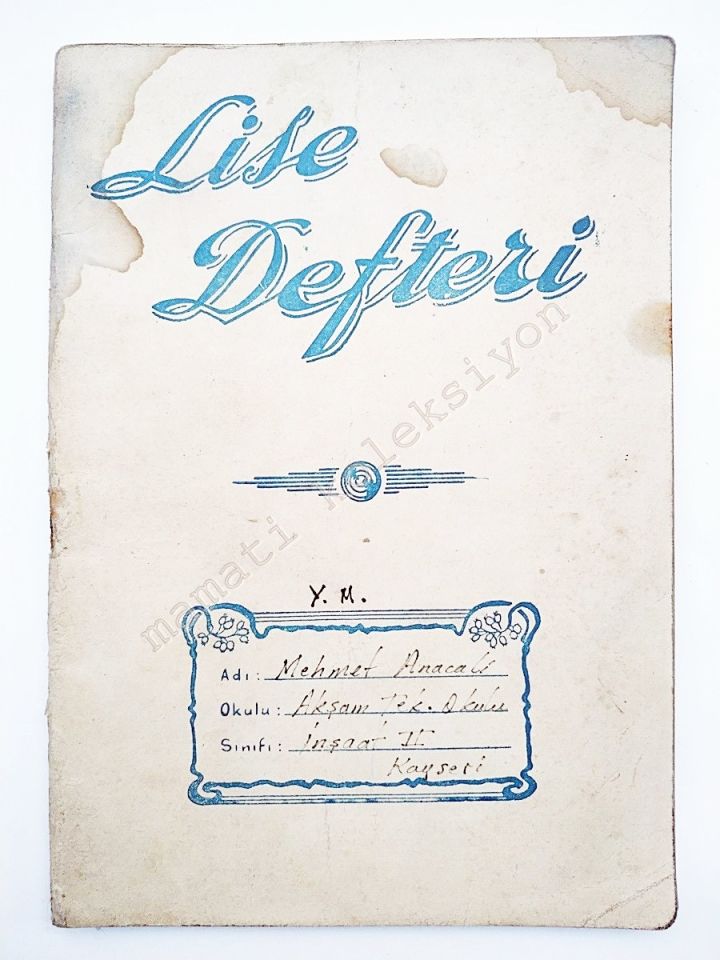 Lise
Defteri
Y. M.
Adı: Mehmet Anacalı
Okulu: Akşam Tek. Okulu
Sınıfı: İnşaat II
Kayseri
mamati koleksiyon